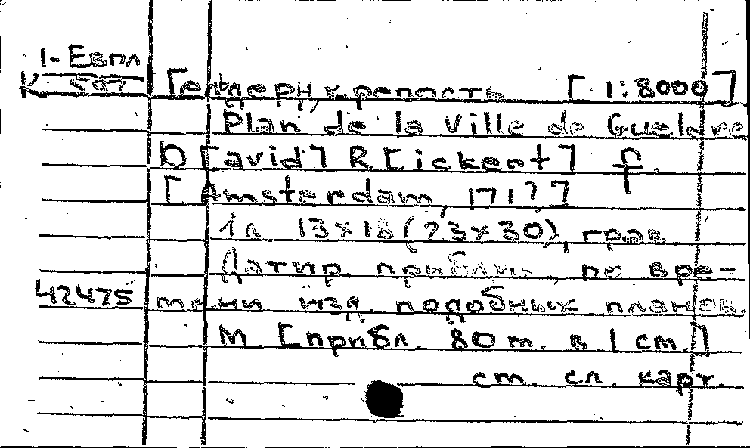 1-Евпл
К 597
Гельдерн, крепость [1:8000]
Plan de la Ville de Gueldre
D[avid] R[ickent] f
[Amsterdam, 171?]
1л. 13x18 (23x30), грав.
Датир приблиз., по вре-
42475 мени изд. подобных планов.
М [прибл. 80 м. в 1 см.]
см. сл. карт.